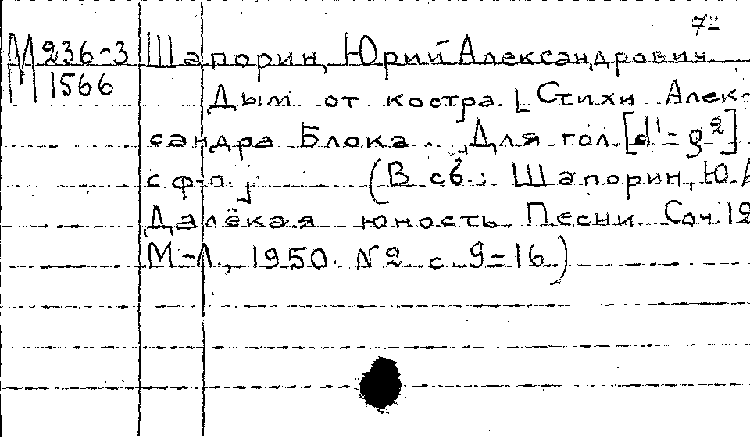 7"
М 236-3 Шапорин, Юрий Александрович.
1566
Дым от костра. [Стихи Алек-
сандра Блока. Для гол. [d'-g²]
с ф-п. (В сб.: Шапорин, Ю.А
Далёкая юность Песни Соч. 12
М-Л, 1950. №2 с. 9-16.)